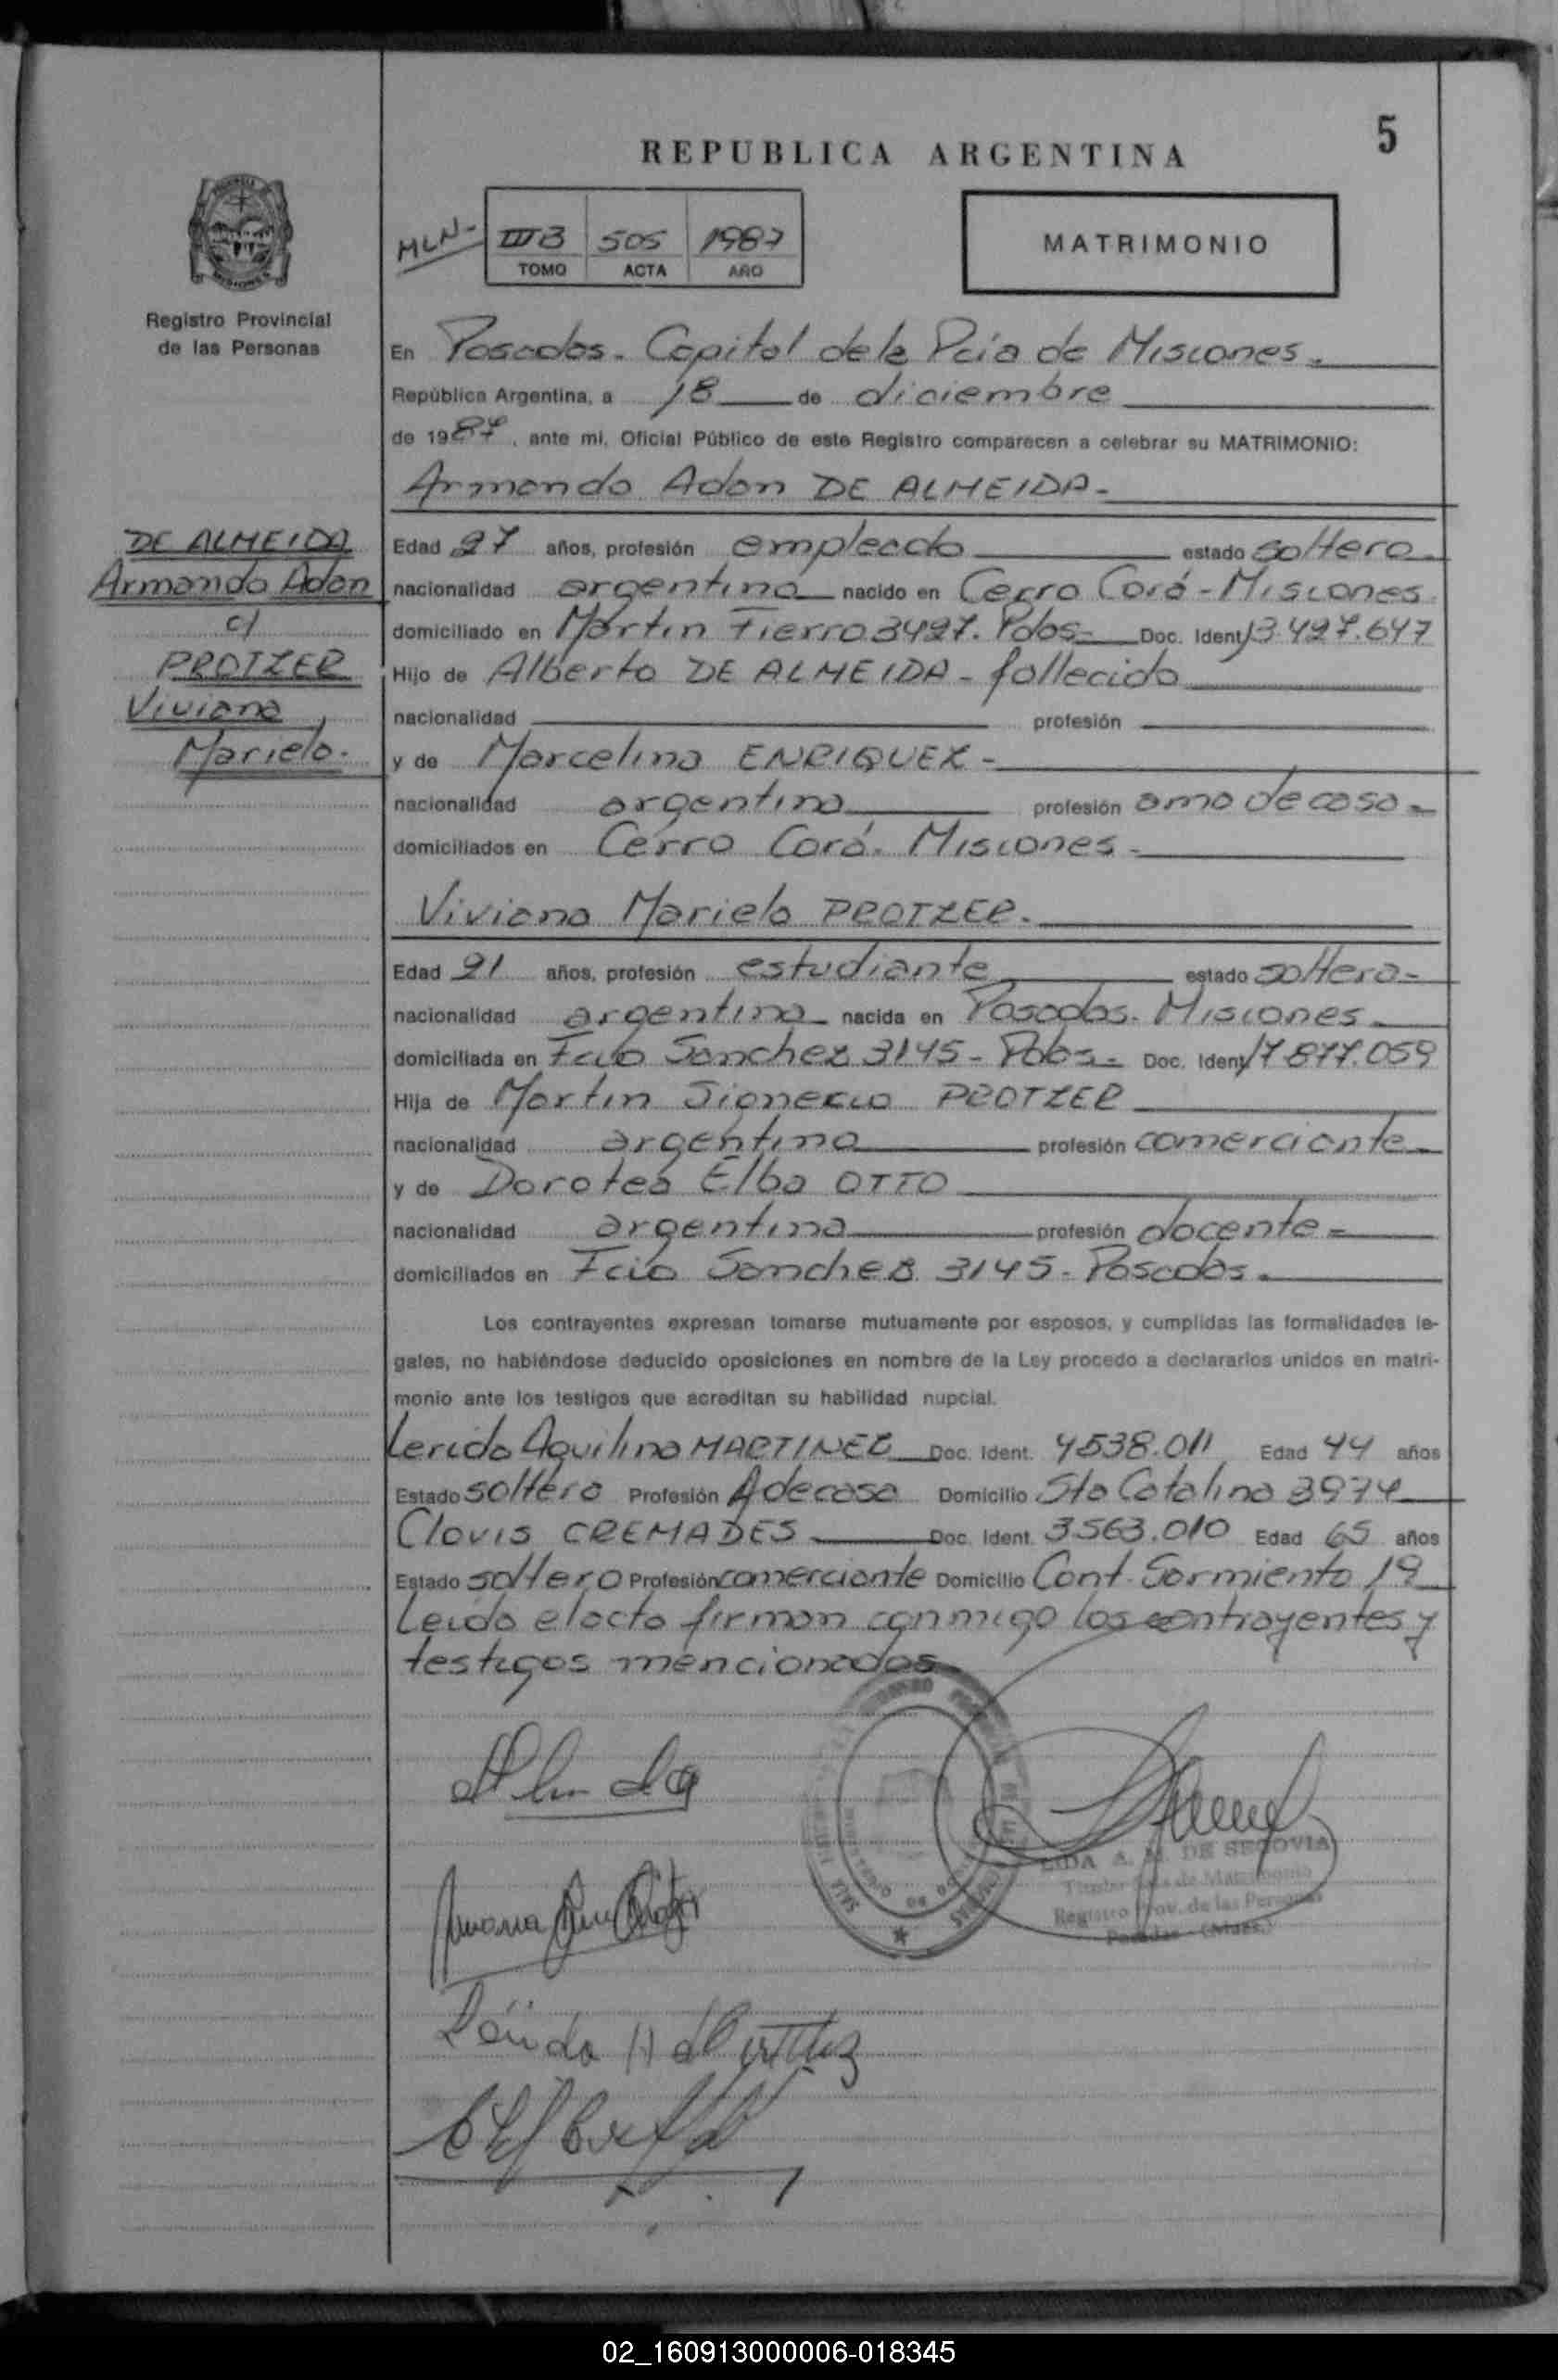 5
REPUBLICA ARGENTINA
MLN-
III B 505 1987
TOMO ACTA AÑO
MATRIMONIO
Registro Provincial
de las Personas
En Posadas - Capital de la Pcia de Misiones -
República Argentina, a 18 de diciembre
de 1987, ante mi, Oficial Público de este Registro comparecen a celebrar su MATRIMONIO:
Armando Adan DE ALMEIDA -
DE ALMEIDA
Armando Adan
c/
PROTZER
Viviana
Mariela -
Edad 27 años, profesión empleado estado soltero -
nacionalidad argentina nacido en Cerro Corá - Misiones
domiciliado en Martin Fierro 3427. Pdas - Doc. Ident. 13.427.647
Hijo de Alberto DE ALMEIDA - fallecido
nacionalidad profesión
y de Marcelina ENRIQUEZ -
nacionalidad argentina profesión ama de casa -
domiciliados en Cerro Corá - Misiones -
Viviana Mariela PROTZER -
Edad 21 años, profesión estudiante estado soltera -
nacionalidad argentina nacida en Posadas - Misiones -
domiciliada en Fcio Sanchez 3145 - Pdas - Doc. Ident. 17.877.059
Hija de Martin PROTZER
nacionalidad argentina profesión comerciante -
y de Dorotea Elba OTTO
nacionalidad argentina profesión docente -
domiciliados en Fcio Sanchez 3145 - Posadas -
Los contrayentes expresan tomarse mutuamente por esposos, y cumplidas las formalidades le-
gales, no habiéndose deducido oposiciones en nombre de la Ley procedo a declararlos unidos en matri-
monio ante los testigos que acreditan su habilidad nupcial.
Aquilina MARTINEZ Doc. Ident. 4538.011 Edad 44 años
Estado soltera Profesión A de casa Domicilio Sta Catalina 3974
Clovis CREMADES Doc. Ident. 3563.010 Edad 65 años
Estado soltero Profesión comerciante Domicilio Cont. Sarmiento 19
Leida el acta firman conmigo los contrayentes y
testigos mencionados
LIDA A. M. DE SEGOVIA
Titular Sala de Matrimonio
Registro Prov. de las Personas
Posadas - (Mnes.)
02_160913000006-018345